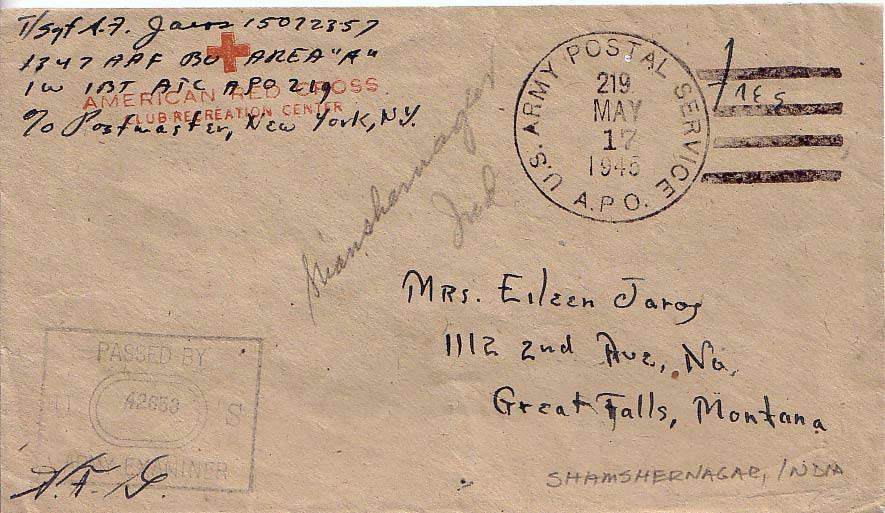 T/Sgt A.F. Jaros 15072357
1347 AAF BU AREA "A"
IW IBT ATC APO 219
AMERICAN RED CROSS
CLUB RECREATION CENTER
℅ Postmaster, New York, N.Y.
Free
U.S. ARMY POSTAL SERVICE
219
MAY
17
1945
A.P.O.
Shamshernagar
Ind
Mrs. Eileen Jaros
1112 2nd Ave, No.
Great Falls, Montana
PASSED BY
U 42653 S
ARMY EXAMINER
SHAMSHERNAGAR, INDIA